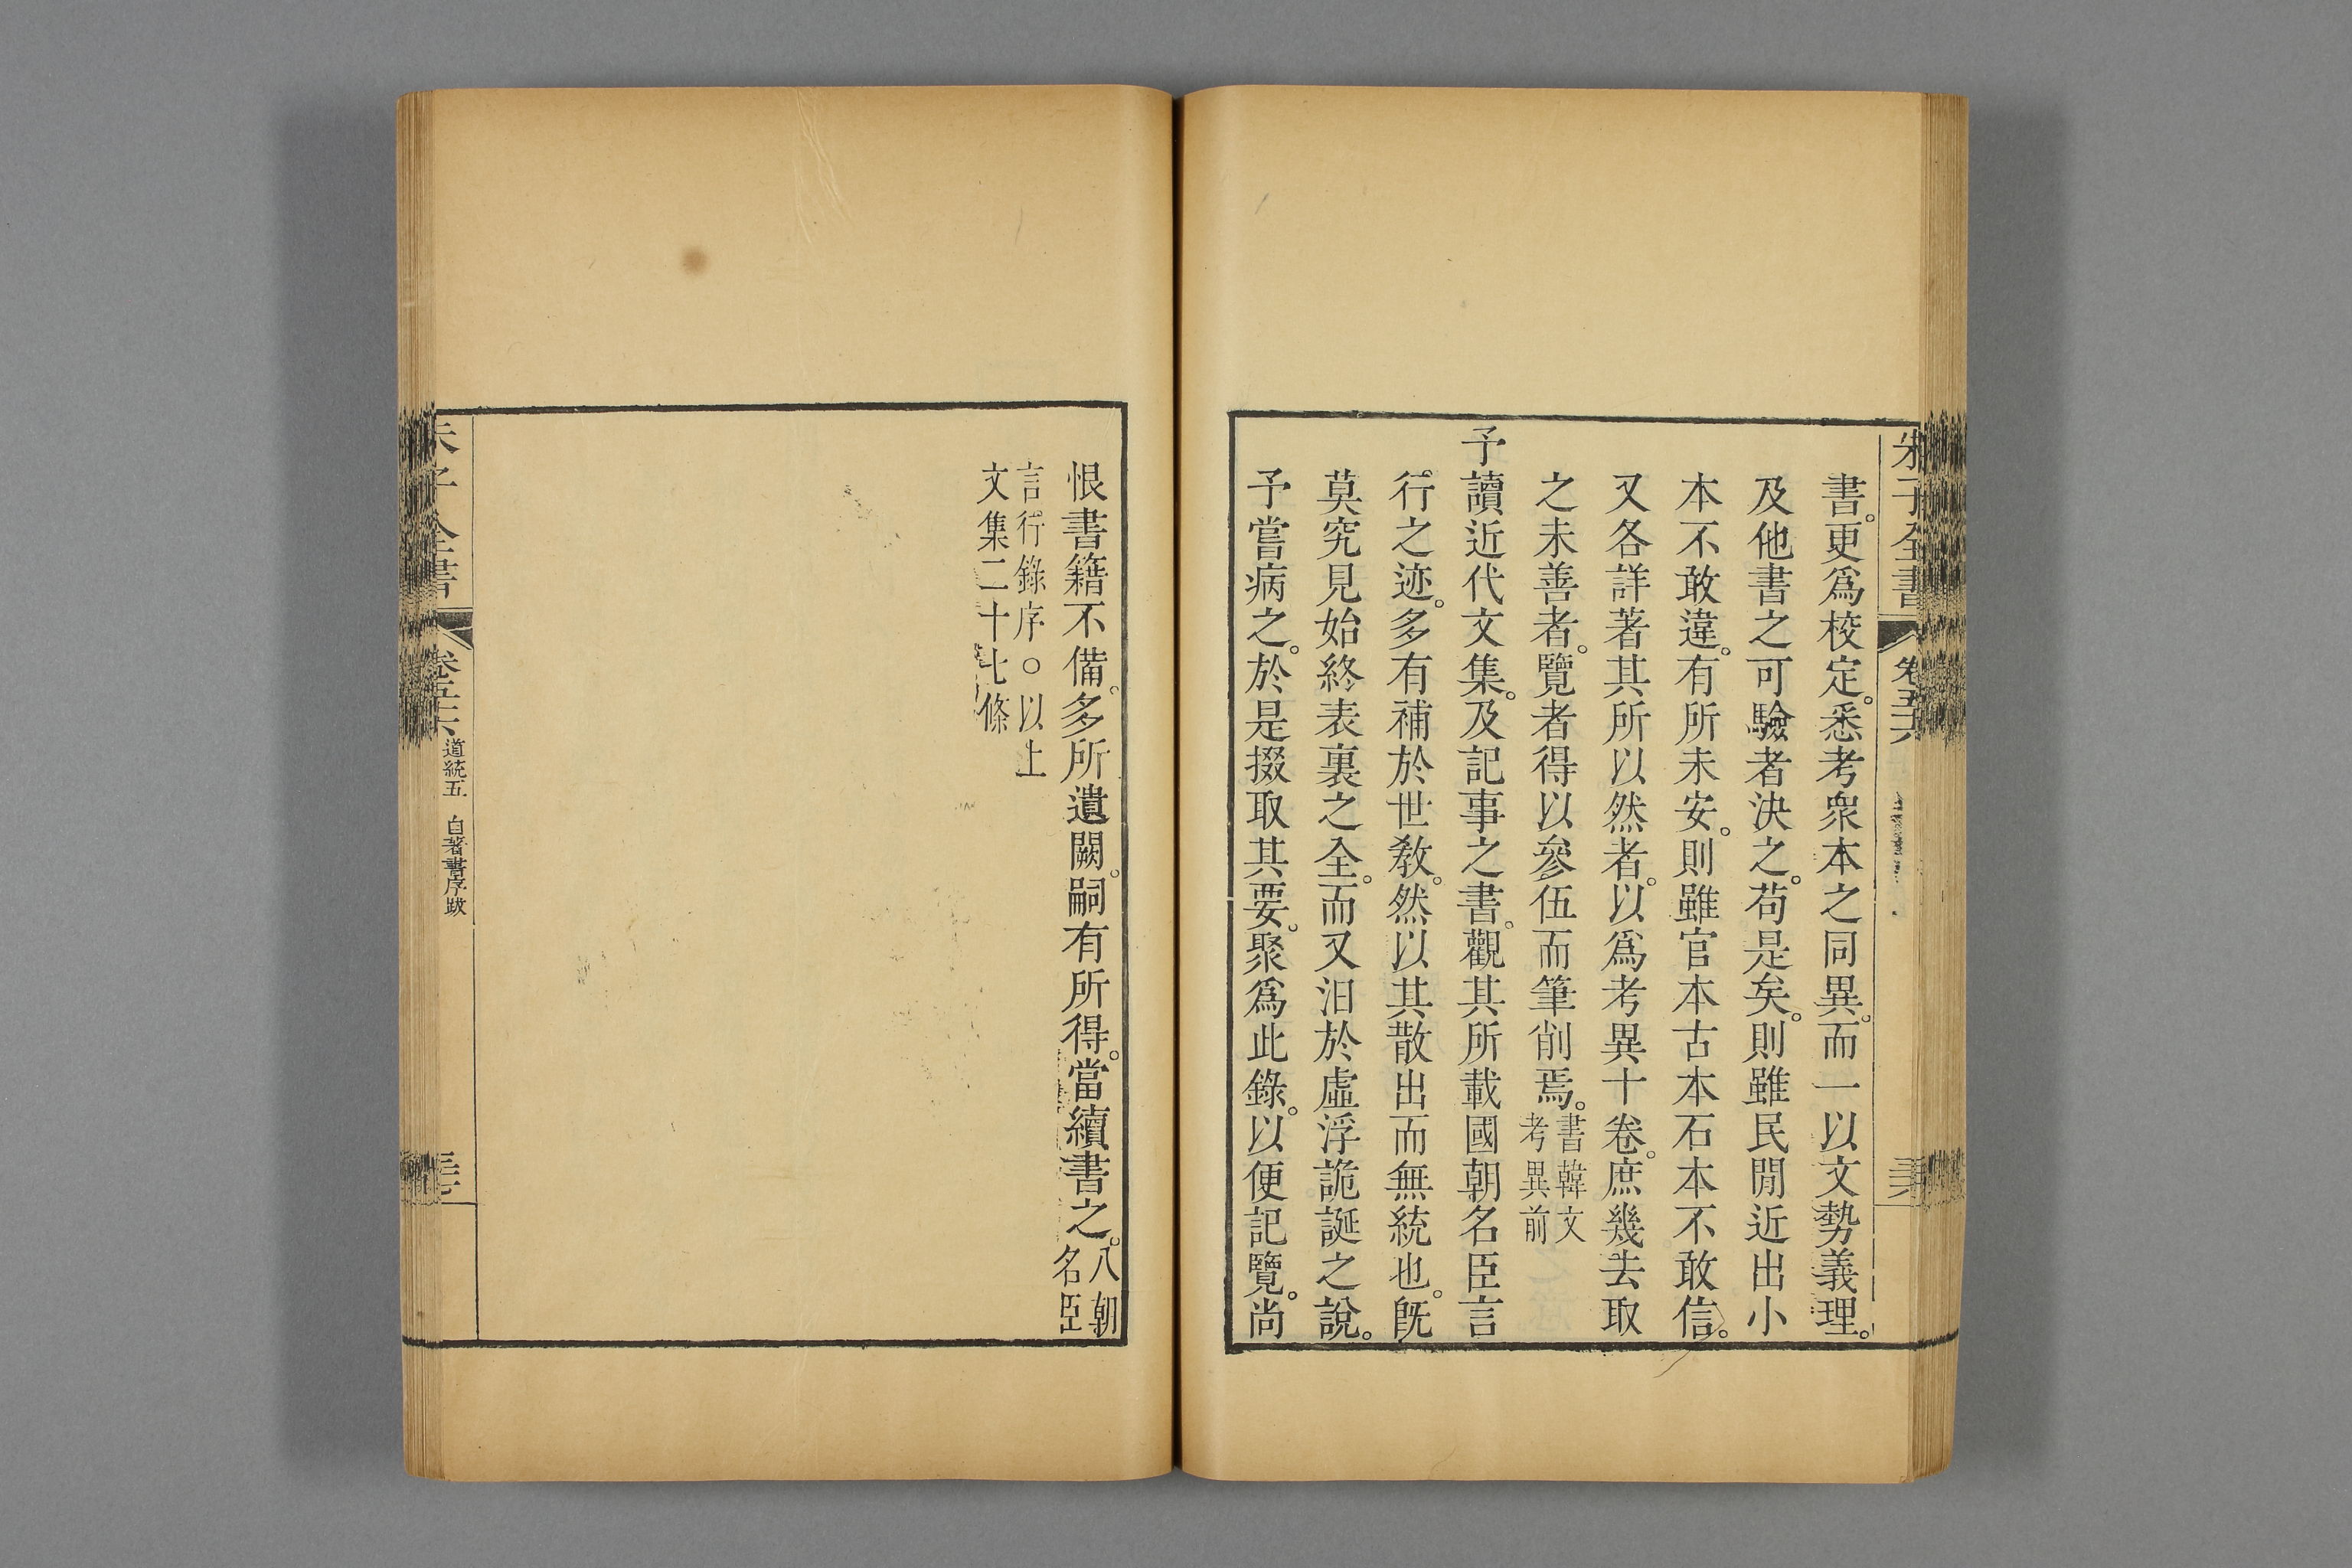 朱子全書 卷五十六
書。更爲校定。悉考衆本之同異。而一以文勢義理。
及他書之可驗者決之。苟是矣。則雖民閒近出小
本不敢違。有所未安。則雖官本古本石本不敢信。
又各詳著其所以然者。以爲考異十卷。庶幾去取
之未善者。覽者得以參伍而筆削焉。書韓文考異前
予讀近代文集。及記事之書。觀其所載國朝名臣言
行之迹。多有補於世敎。然以其散出而無統也。旣
莫究見始終表裏之全。而又汨於虛浮詭誕之說。
予嘗病之。於是掇取其要。聚爲此錄。以便記覽。尚
恨書籍不備。多所遺闕。嗣有所得。當續書之。八朝名臣
言行錄序。○以上
文集二十七條
朱子全書 卷五十六 道統五 自著書序跋